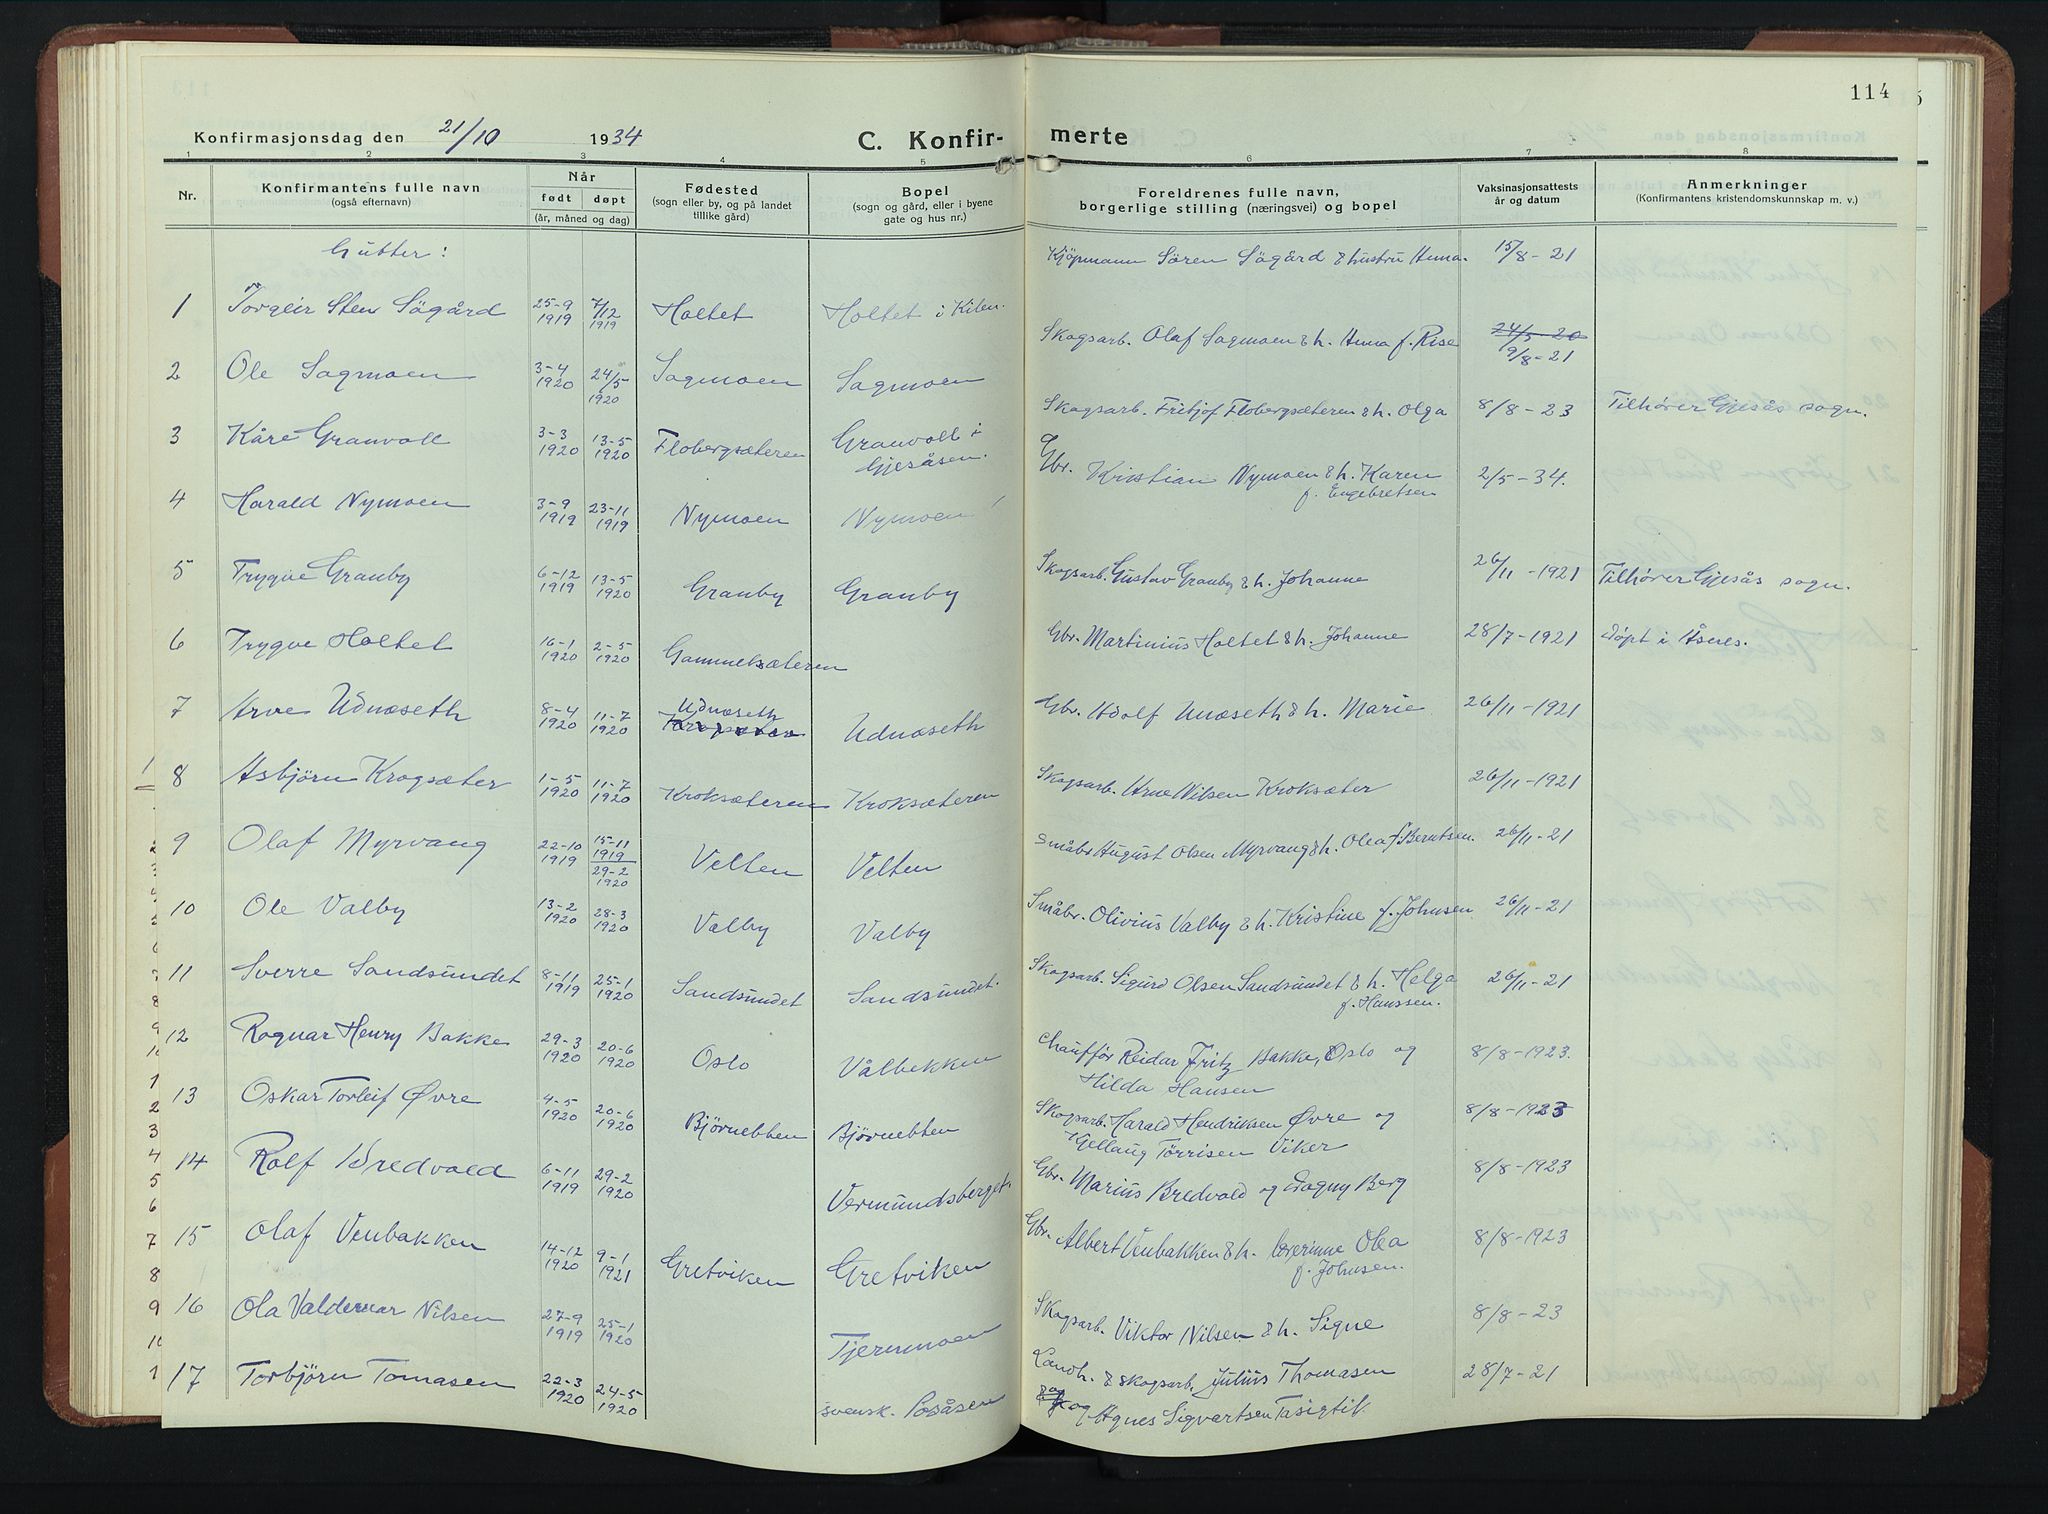 114
Konfirmasjonsdag den 21/10 1934 C. Konfirmerte
1 2 3 4 5 6 7 8
Nr. Konfirmantens fulle navn (også efternavn) Når født døpt (år, måned og dag) Fødested (sogn eller by, og på landet tillike gård) Bopel (sogn og gård, eller i byene gate og hus nr.) Foreldrenes fulle navn, borgerlige stilling (næringsvei) og bopel Vaksinasjonsattests år og datum Anmerkninger (Konfirmantens kristendomskunnskap m. v.)
Gutter:
1 Torgeir Sten Sögård 25-9 1919 7/12 1919 Holtet Holtet i Kilen. Kjöpmann Sören Sögård & hustru Anna. 15/8-21
2 Ole Sagmoen 3-4 1920 24/5 1920 Sagmoen Sagmoen Skogsarb. Olaf Sagmoen & h. Anna f. Rise 24/5-20 9/8-21
3 Kåre Granvoll 3-3 1920 13-5 1920 Flobergsæteren Granvoll i Gjesåsen. Skogsarb. Fritjof Flobergsæteren & h. Olga 8/8-23 Tilhører Gjesås sogn.
4 Harald Nymoen 3-9 1919 23-11 1919 Nymoen Nymoen Gbr. Kristian Nymoen & h. Karen f. Engebretsen 2/5-34.
5 Trygve Granby 6-12 1919 13-5 1920 Granby Granby Skogsarb. Gustav Granby & h. Johanne 26/11-1921 Tilhører Gjesås sogn.
6 Trygve Holtet 16-1 1920 2-5 1920 Gammelsæteren Gbr. Martinius Holtet & h. Johanne 28/7-1921 Döpt i Åsnes.
7 Arve Udnæseth 8-4 1920 11-7 1920 Udnæseth Udnæseth Gbr. Adolf Unæseth & h. Marie 26/11-1921
8 Asbjörn Krogsæter 1-5 1920 11-7 1920 Kroksæteren Kroksæteren Skogsarb. Arne Nilsen Kroksæter 26/11-1921
9 Olaf Myrvang 22-10 1919 15-11 1919 29-2 1920 Velten Velten Småbr August Olsen Myrvang & h. Olea f. Berntsen. 26/11-21
10 Ole Valby 13-2 1920 28-3 1920 Valby Valby Småbr. Olivius Valby & h. Kristine f. Johnsen 26/11-21
11 Sverre Sandsundet 8-11 1919 25-1 1920 Sandsundet Sandsundet. Skogsarb. Sigurd Olsen Sandsundet & h. Helga f. Hanssen. 26/11-21
12 Ragnar Henry Bakke 29-3 1920 20-6 1920 Oslo Vålbekken Chaufför Reidar Fritz Bakke, Oslo og Hilda Hansen 8/8-1923.
13 Oskar Torleif Øvre 4-5 1920 20-6 1920 Björnebben Björnebben Skogsarb. Harald Hendriksen Øvre og Kjellaug Torrisen Viker 8/8-1923
14 Rolf Bredvold 6-11 1919 29-2 1920 Vermundsberget. Gbr. Marius Bredvold og Dagny Berg 8/8-1923
15 Olaf Venbakken 14-12 1920 9-1 1921 Gretviken Gretviken Gbr. Albert Venbakken & h. Severinne Olea f. Johnsen. 8/8-1923
16 Ola Valdemar Nilsen 27-9 1919 25-1 1920 Tjernmoen Skogsarb. Viktor Nilsen & h. Signe 8/8-23
17 Torbjörn Tomasen 22-3 1920 24-5 1920 svensk. Posåsen Landh. & skogsarb. Julius Thomasen og Agnes Sigvartsen 28/7-21